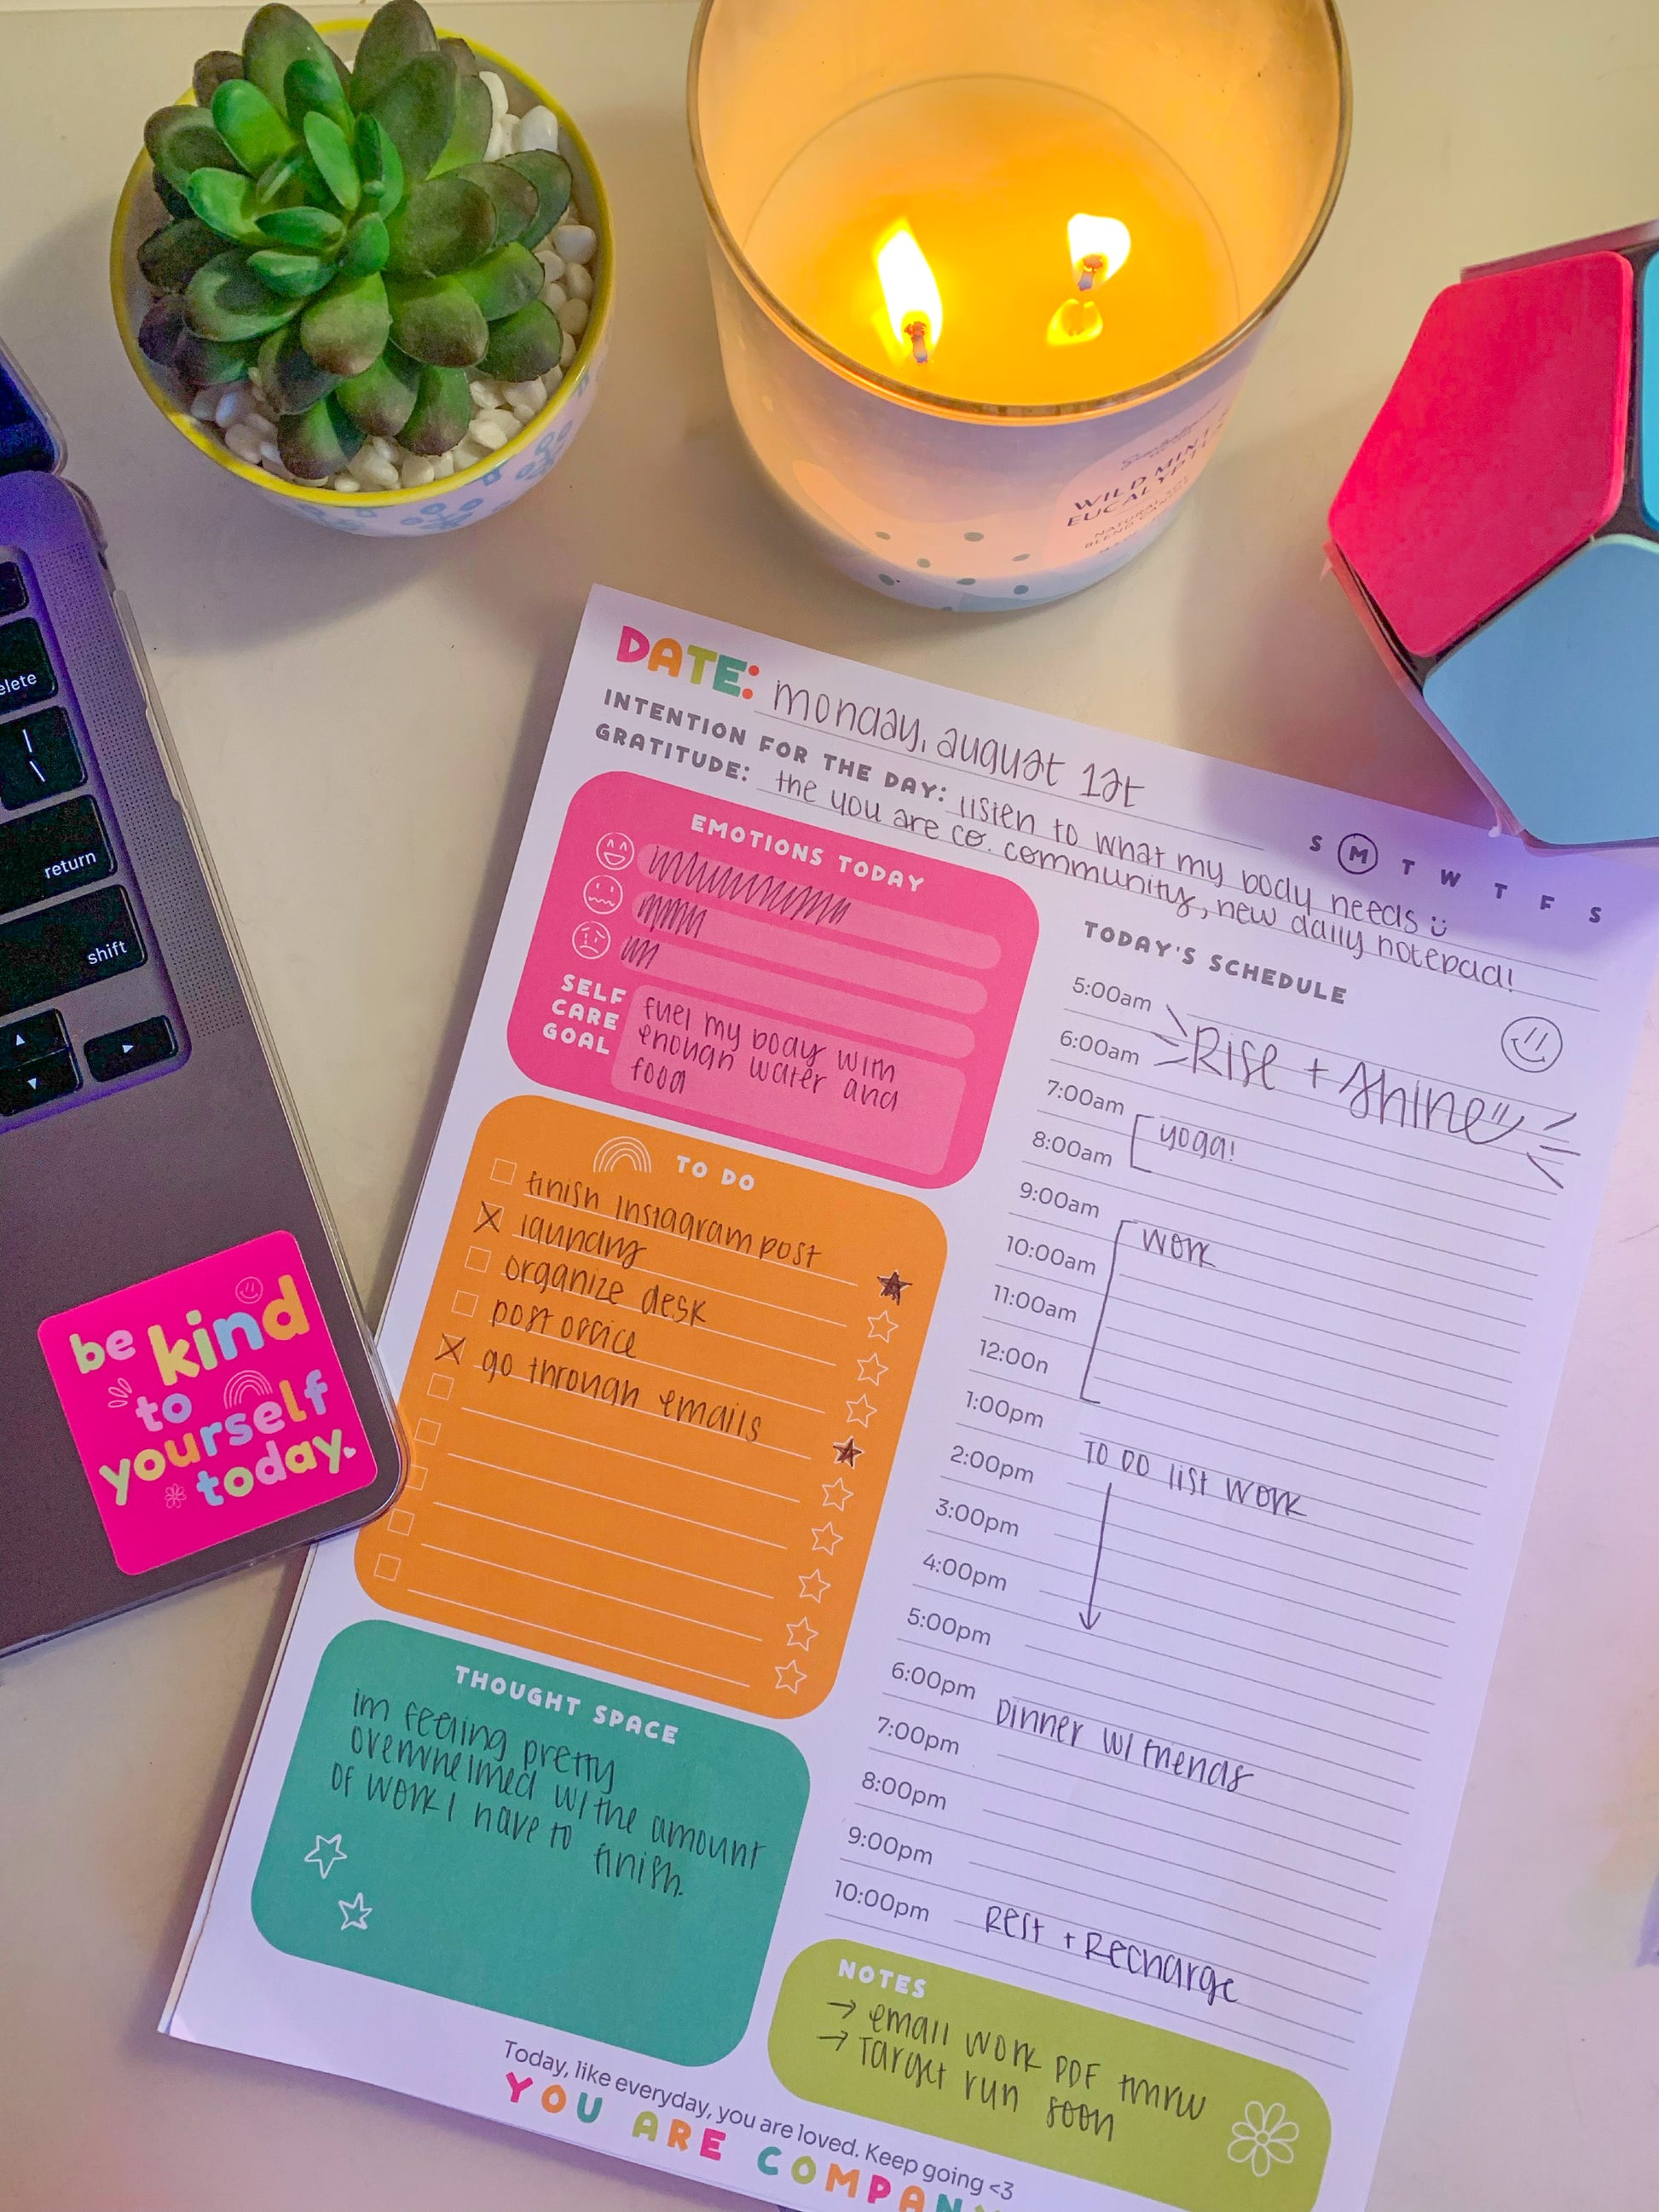 WILD MINT
EUCALYPTU
NATURAL
BLEND
elete
|
\
return
shift
be kind
to
yourself
today.
DATE: monday, august 1st
INTENTION FOR THE DAY: listen to what my body needs
GRATITUDE: the you are co. community, new daily notepad!
S M T W T F S
EMOTIONS TODAY
SELF
CARE
GOAL
fuel my body with
enough water and
food
TO DO
finish instagram post
laundry
organize desk
post office
go through emails
THOUGHT SPACE
im feeling pretty
overwhelmed w/ the amount
of work I have to finish.
TODAY'S SCHEDULE
5:00am
6:00am Rise + Shine
7:00am yoga!
8:00am
9:00am work
10:00am
11:00am
12:00n
1:00pm
2:00pm TO DO list work
3:00pm
4:00pm
5:00pm
6:00pm Dinner w/ friends
7:00pm
8:00pm
9:00pm
10:00pm Rest + Recharge
NOTES
→ email work PDF tmrw
→ Target run soon
Today, like everyday, you are loved. Keep going <3
YOU ARE COMPANY